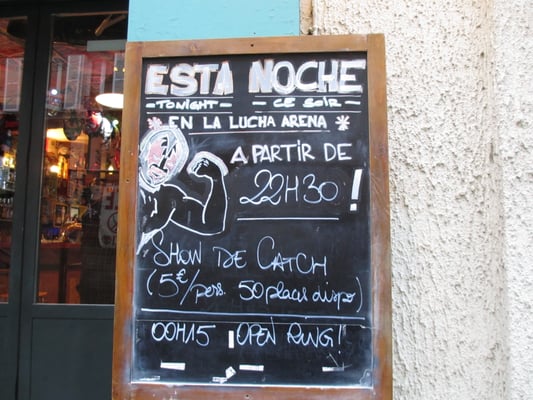 ESTA NOCHE
- TONIGHT - - CE SOIR -
* EN LA LUCHA ARENA *
A PARTIR DE
22H30!
SHOW DE CATCH
(5€/pers. 50 places dispo)
00H15 OPEN RING!